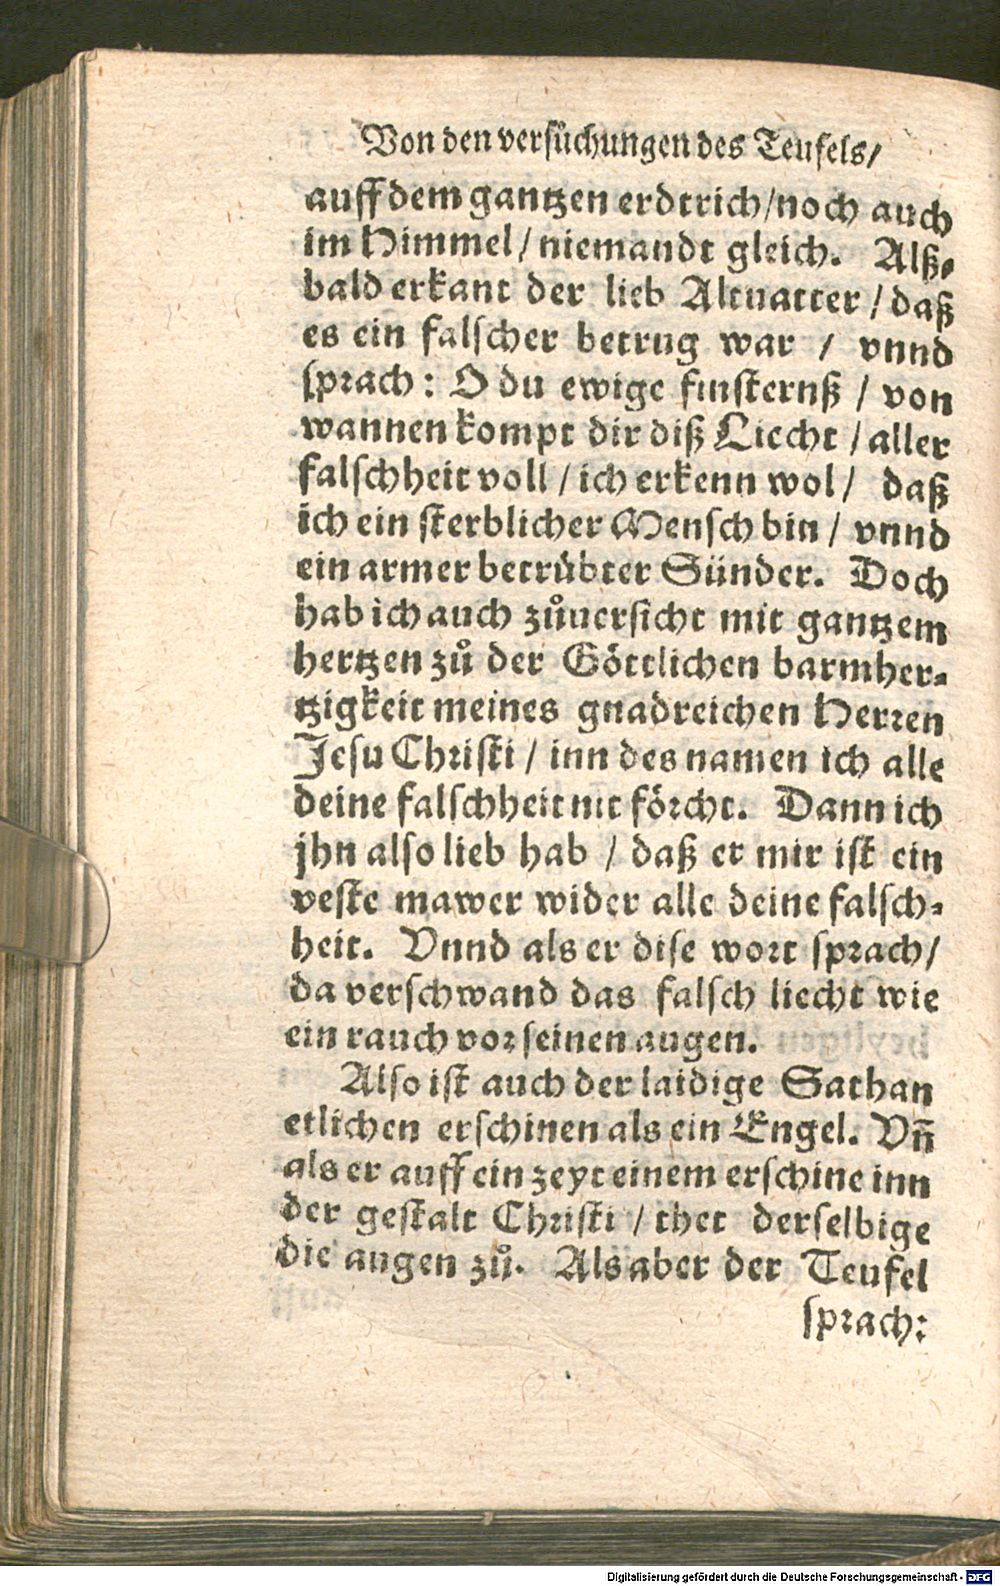 Von den versůchungen des Teufels/
auff dem gantzen erdtrich/noch auch
im Himmel/ niemandt gleich. Alß⸗
bald erkant der lieb Altuatter / daß
es ein falscher betrug war / vnnd
sprach: O du ewige finsternß / von
wannen kompt dir diß Liecht / aller
falschheit voll / ich erkenn wol / daß
ich ein sterblicher Mensch bin / vnnd
ein armer betrübter Sünder. Doch
hab ich auch zůuersicht mit gantzem
hertzen zů der Göttlichen barmher⸗
tzigkeit meines gnadreichen Herren
Jesu Christi / inn des namen ich alle
deine falschheit nit förcht. Dann ich
jhn also lieb hab / daß er mir ist ein
veste mawer wider alle deine falsch⸗
heit. Vnnd als er dise wort sprach/
da verschwand das falsch liecht wie
ein rauch vor seinen augen.
Also ist auch der laidige Sathan
etlichen erschinen als ein Engel. Vn̄
als er auff ein zeyt einem erschine inn
der gestalt Christi / thet derselbige
die augen zů. Als aber der Teufel
sprach:
Digitalisierung gefördert durch die Deutsche Forschungsgemeinschaft - DFG